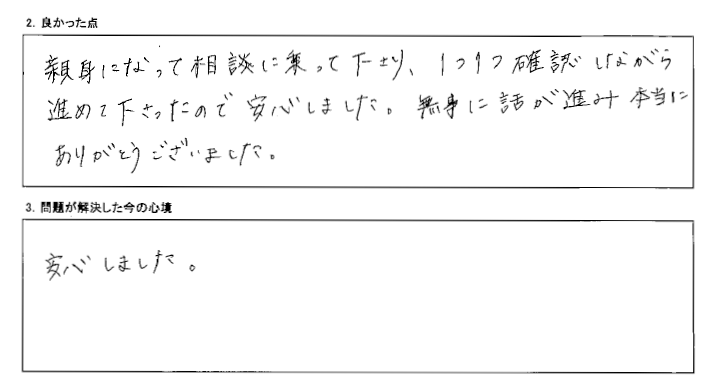 2. 良かった点
親身になって相談に乗って下さり、1つ1つ確認しながら
進めて下さったので安心しました。無事に話が進み本当に
ありがとうございました。
3. 問題が解決した今の心境
安心しました。